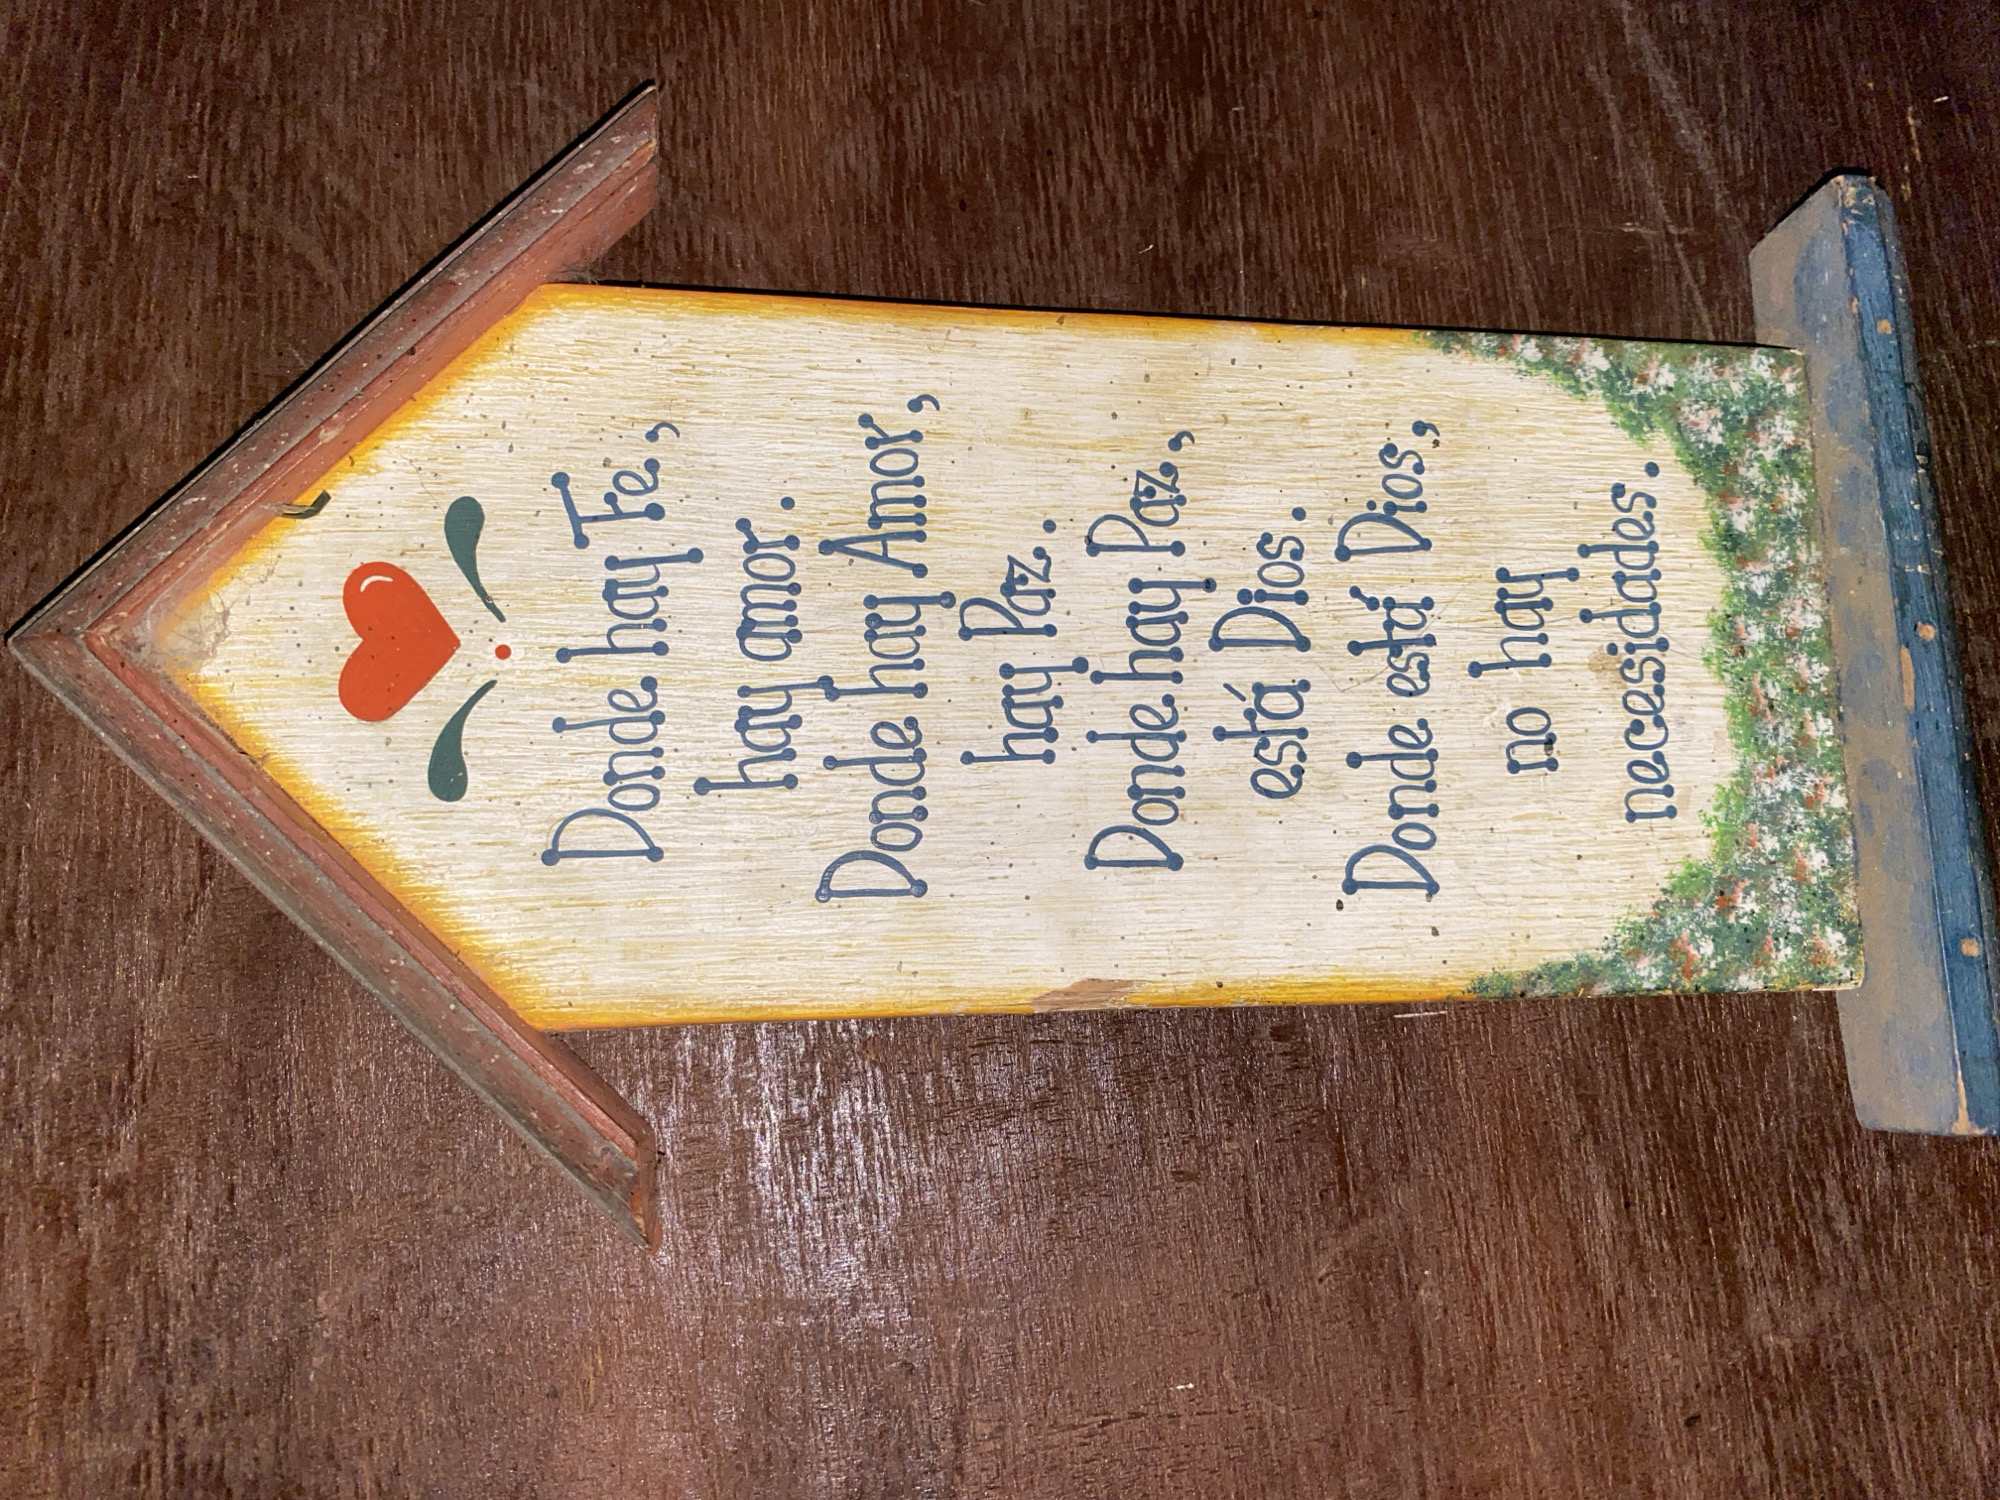 Donde hay Fe,
hay amor.
Donde hay Amor,
hay Paz.
Donde hay Paz,
está Dios.
Donde está Dios,
no hay
necesidades.